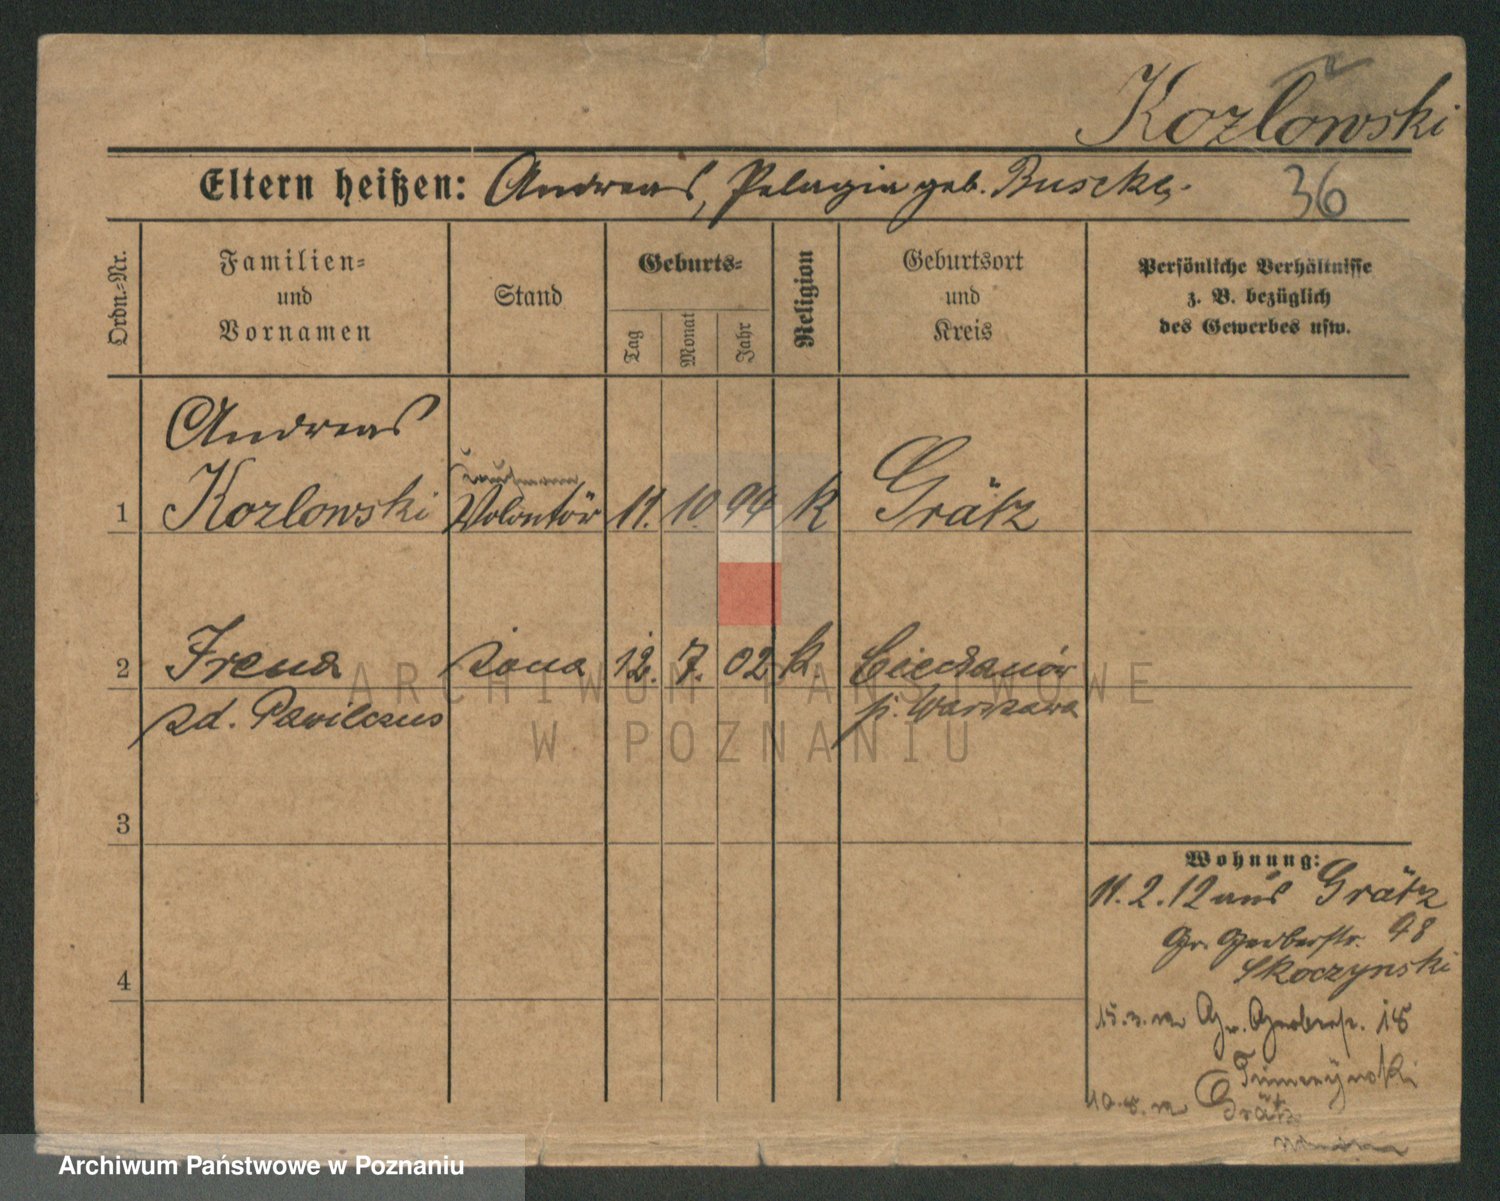 Kozlowski
Eltern heißen: Andreas, Pelagia geb.
36
Ordn.-Nr.
Familien-
und
Vornamen
Stand
Geburts-
Tag
Monat
Jahr
Religion
Geburtsort
und
Kreis
Persönliche Verhältnisse
z. B. bezüglich
des Gewerbes usw.
Andreas
1 Kozlowski Volontör 11. 10. 94 k Grätz
2 Irena żona 12. 7. 02 k. Ciechanów
zd. p. Warszawa
3
4
Wohnung:
11. 2. 12 aus Grätz
Gr. Gerberstr. 48
Skoczynski
Gr. Gerberstr. 18
Grätz
ARCHIWUM PAŃSTWOWE
W POZNANIU
Archiwum Państwowe w Poznaniu